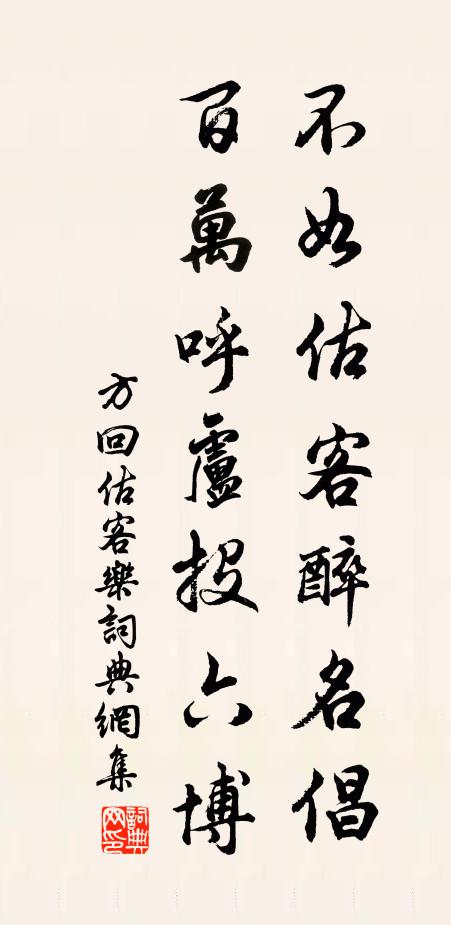 不如估客醉名倡
百萬呼盧投六博
方回估客樂詞典網集
詞典網印